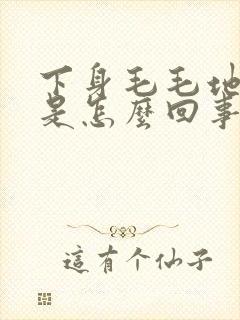 下身毛毛地
是怎麽回事
這有个仙子